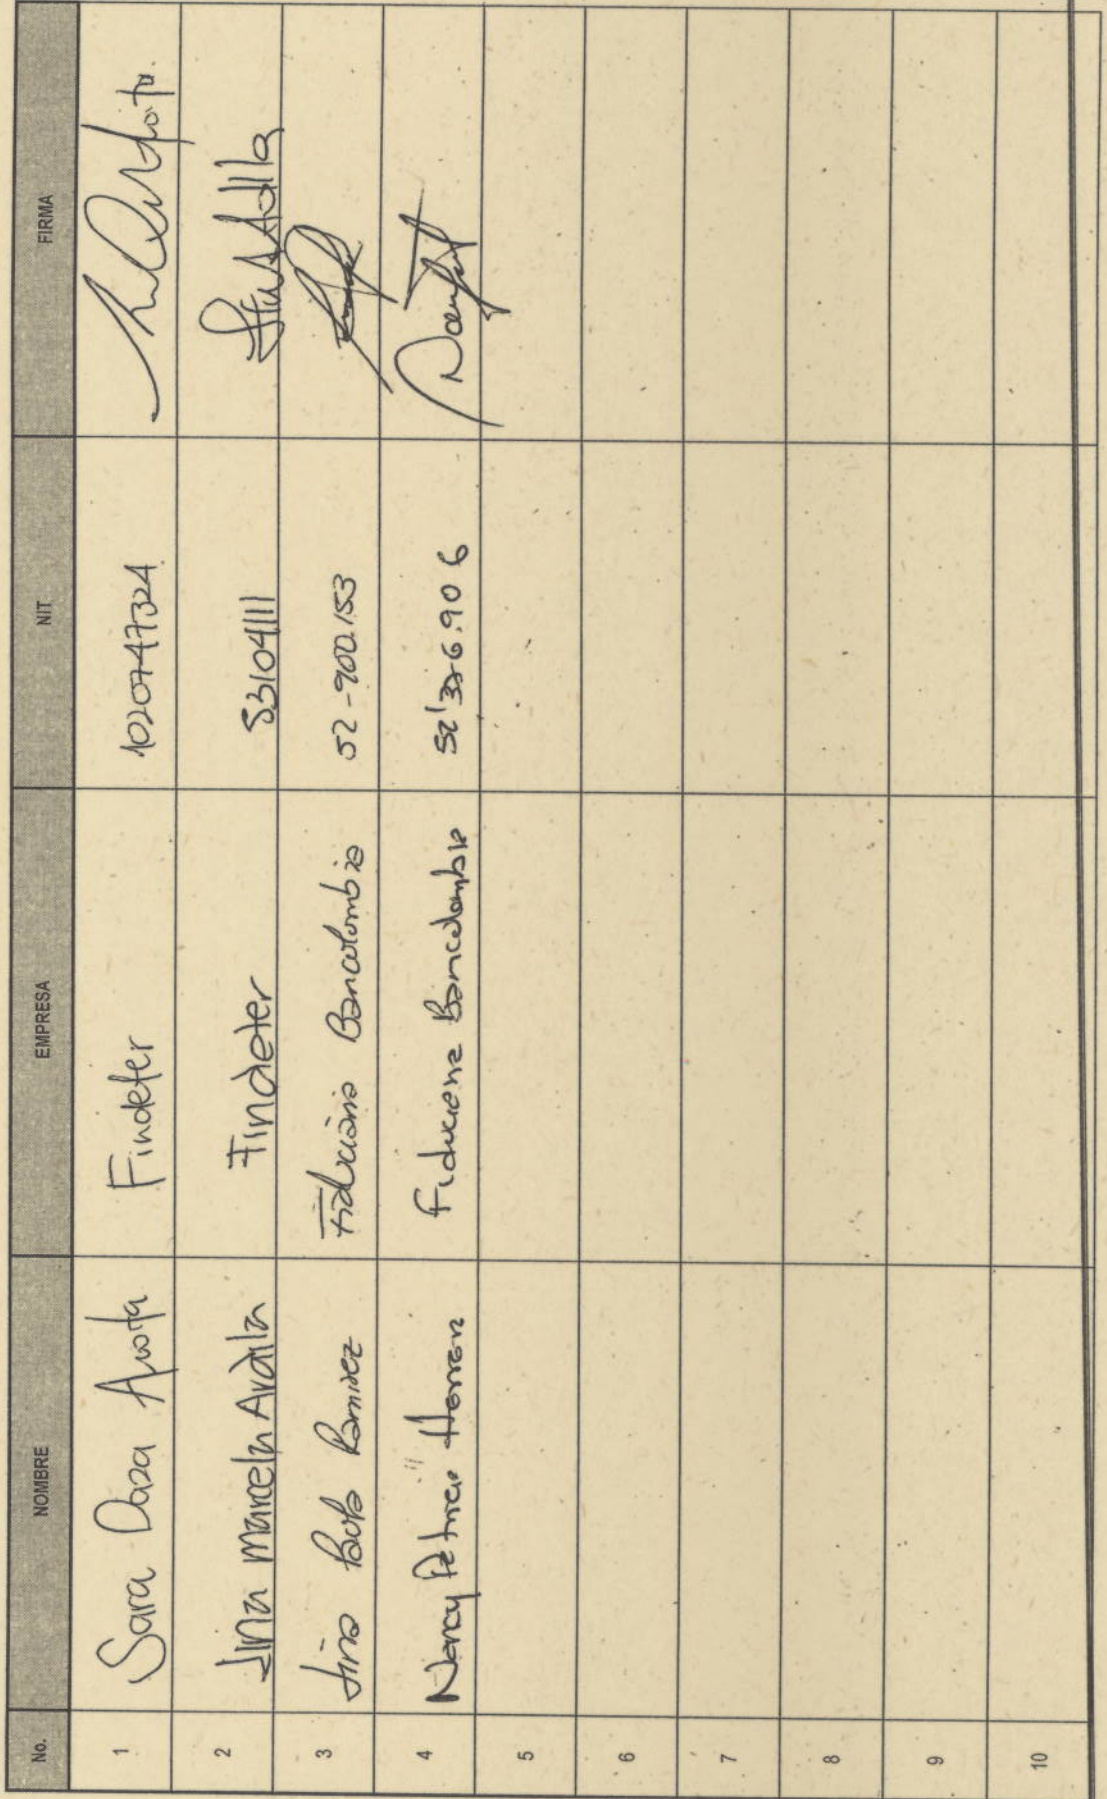 No. NOMBRE EMPRESA NIT FIRMA
1 Sara Daza Acosta Findeter 1020747324
2 Lina Marcela Ardila Findeter 53104111
3 Lina Paola Ramirez Fiduciaria Bancolombia 52-900.153
4 Nancy Patricia Herrera Fiduciaria Bancolombia 52'326.906
5
6
7
8
9
10